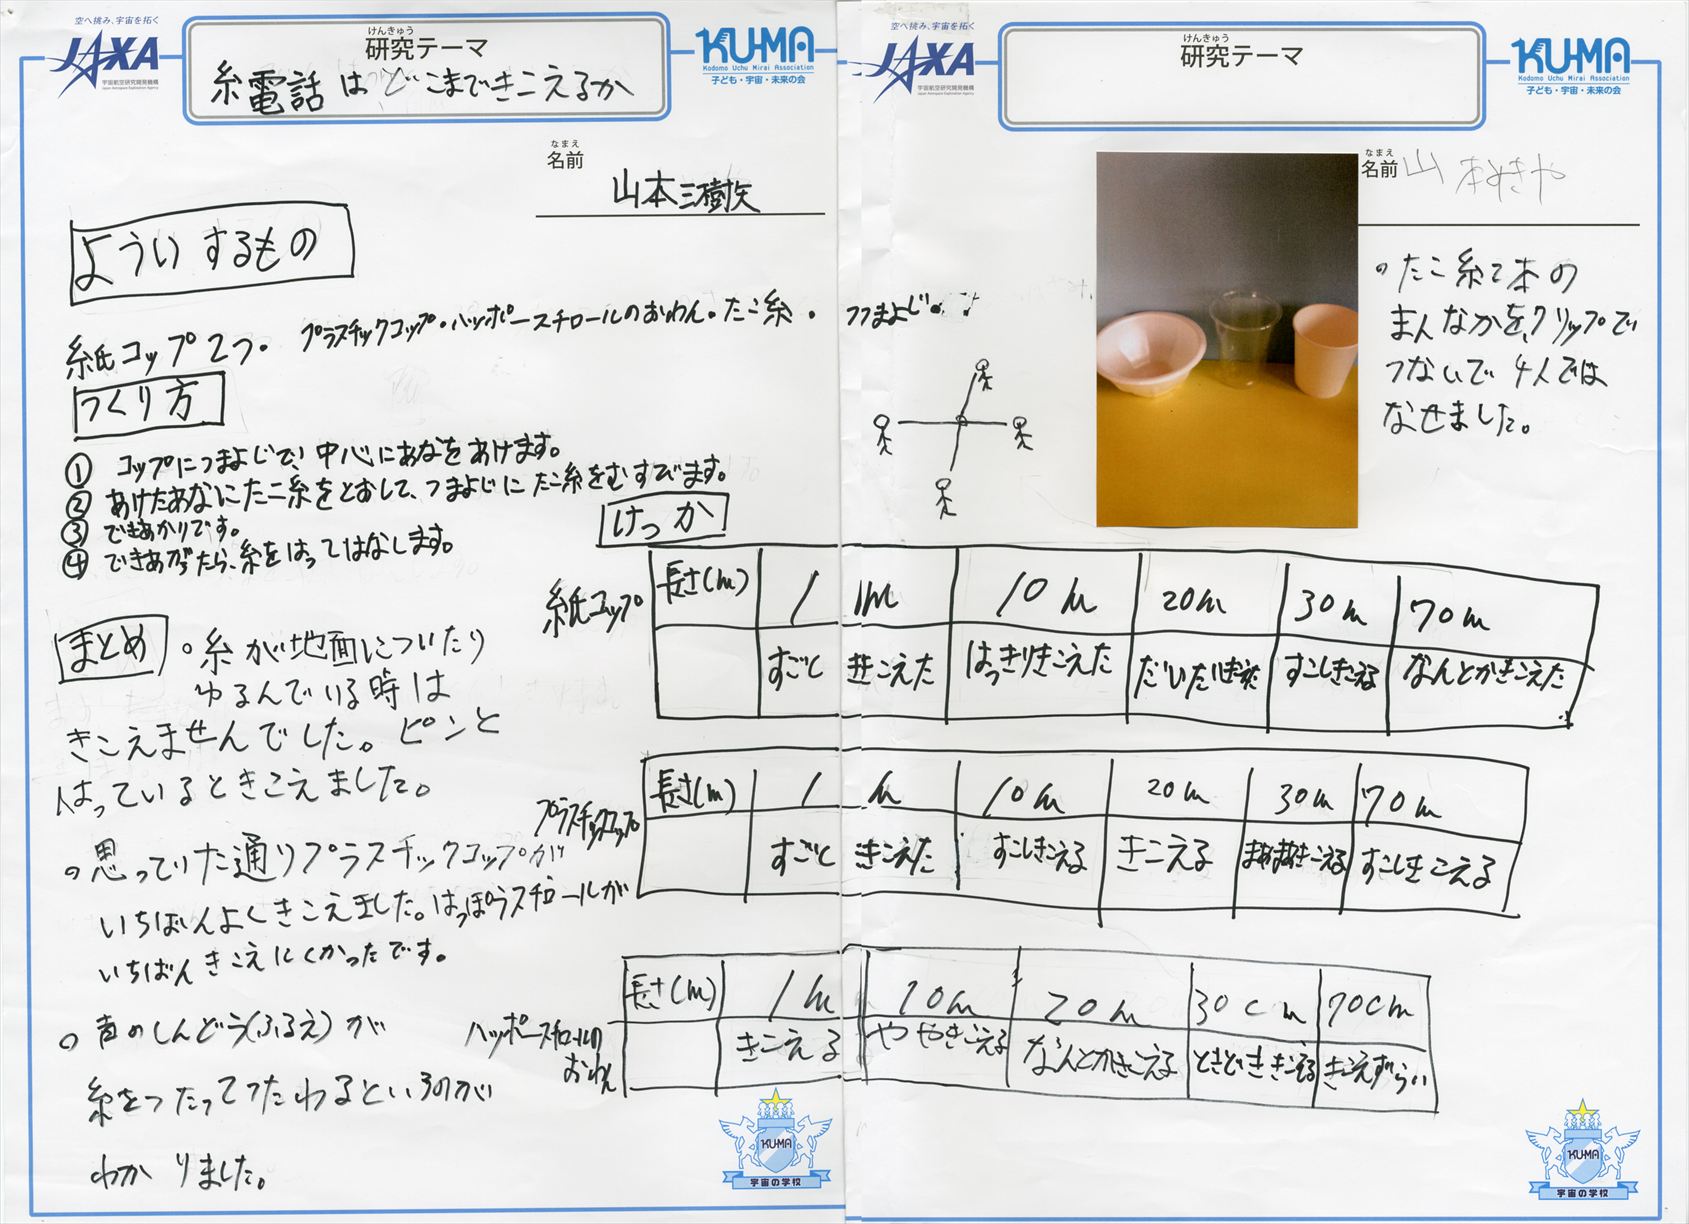 空へ挑み、宇宙を拓く
JAXA
宇宙航空研究開発機構
Japan Aerospace Exploration Agency
けんきゅう
研究テーマ
糸電話はどこまできこえるか
KU-MA
Kodomo Uchu Mirai Association
子ども・宇宙・未来の会
なまえ
名前
山本三樹矢
よういするもの
紙コップ2つ・プラスチックコップ・ハッポースチロールのおわん・たこ糸・つまよじ・
つくり方
① コップにつまよじで、中心にあなをあけます。
② あけたあなにたこ糸をとおして、つまよじにたこ糸をむすびます。
③ できあかりです。
④ できあがったら、糸をはってはなします。
まとめ
○糸が地面についたり
ゆるんでいる時は
きこえませんでした。ピンと
はっているときこえました。
○思っていた通りプラスチックコップが
いちばんよくきこえました。はっぽうスチロールが
いちばんきこえにくかったです。
○声のしんどう(ふるえ)が
糸をつたってつたわるというのが
わかりました。
空へ挑み、宇宙を拓く
JAXA
宇宙航空研究開発機構
Japan Aerospace Exploration Agency
けんきゅう
研究テーマ
KU-MA
Kodomo Uchu Mirai Association
子ども・宇宙・未来の会
なまえ
名前
山本みきや
○たこ糸2本の
まんなかをクリップで
つないで4人では
なせました。
けっか
紙コップ
長さ(m) 1 1m 10m 20m 30m 70m
すごく きこえた はっきりきこえた だいたいきこえた すこしきこえる なんとかきこえた
プラスチックコップ
長さ(m) 1 m 10m 20m 30m 70m
すごく きこえた すこしきこえる きこえる まあまあきこえる すこしきこえる
ハッポースチロールの
おわん
長さ(m) 1m 10m 20m 30cm 70cm
きこえる ややきこえる なんとかきこえる ときどききこえる きこえずらい
KU-MA
宇宙の学校
KU-MA
宇宙の学校